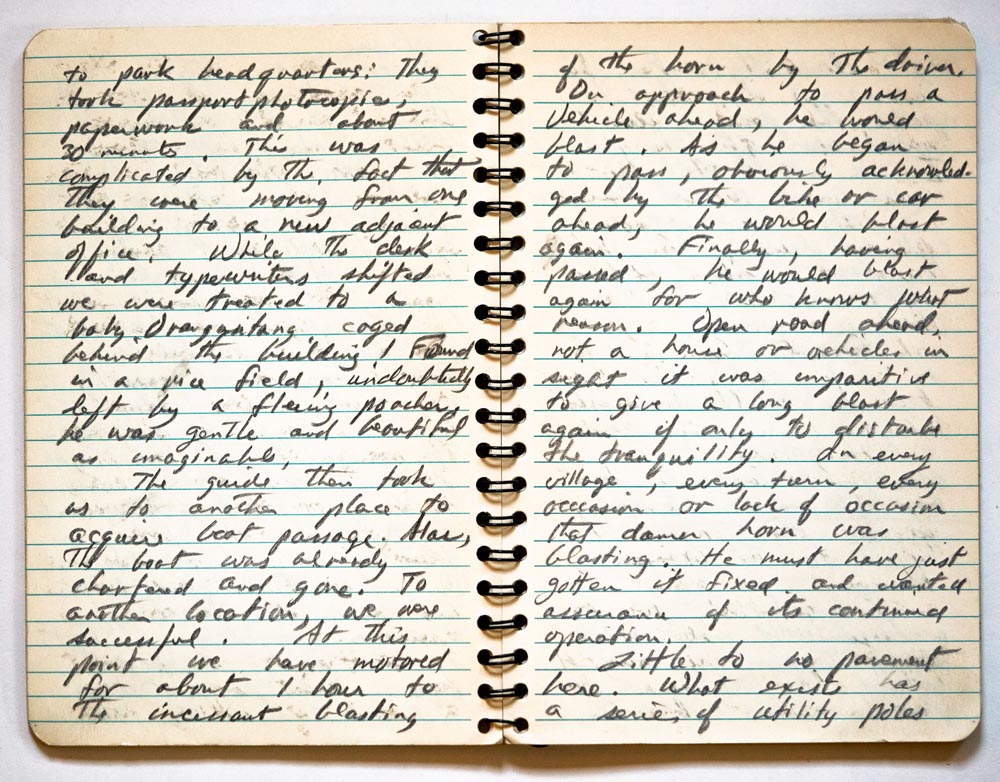 to park headquarters: They
took passport photocopies,
paperwork and about
30 minuts. This was
complicated by the fact that
they were moving from one
building to a new adjacent
office. While the desk
and typewriters shifted
we were treated to a
baby Oranggnitang caged
behind the building! Found
in a rice field, undoubtedly
left by a fleeing poacher,
he was gentle and beautiful
as imaginable,
The guide then took
us to another place to
acquire boat passage. Alas,
The boat was already
chartered and gone. To
another location, we were
successful. At this
point we have motored
for about 1 hour to
The incessant blasting
of the horn by The driver.
On approach to pass a
vehicle ahead, he would
blast. As he began
to pass, obviously acknowled-
ged by the bike or car
ahead, he would blast
again. Finally, having
passed, he would blast
again for who knows what
reason. Open road ahead,
not a house or vehicles in
sight it was imparitive
to give a long blast
again if only to disturbe
the tranquility. In every
village, every turn, every
occasion or lack of occasion
that damn horn was
blasting. He must have just
gotten it fixed and wanted
assurance of its continued
operation.
Little to no pavement
here. What exists has
a series of utility poles